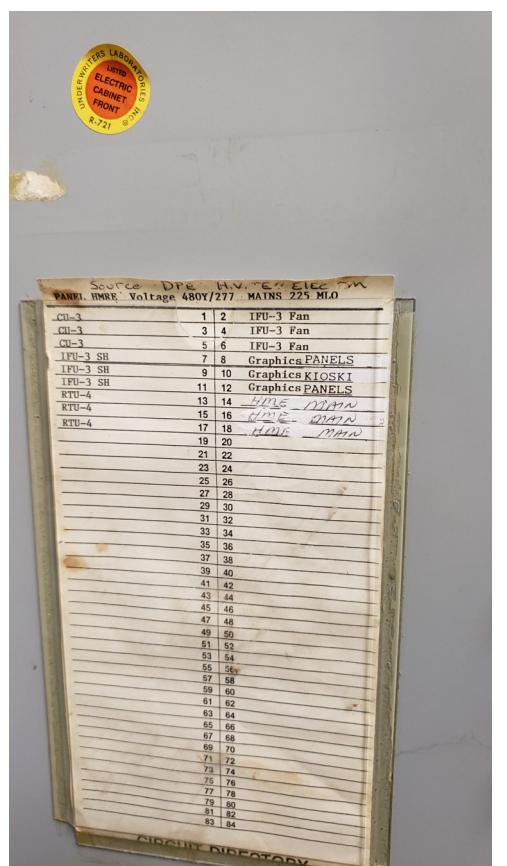 UNDERWRITERS LABORATORIES INC.®
LISTED
ELECTRIC
CABINET
FRONT
R-721
Source DPE H.V. "E" ELEC
PANEL HMRE Voltage 480Y/277 MAINS 225 MLO
CU-3 1 2 IFU-3 Fan
CU-3 3 4 IFU-3 Fan
CU-3 5 6 IFU-3 Fan
IFU-3 SH 7 8 Graphics PANELS
IFU-3 SH 9 10 Graphics KIOSKI
IFU-3 SH 11 12 Graphics PANELS
RTU-4 13 14 HME MAIN
RTU-4 15 16 HME MAIN
RTU-4 17 18 HME MAIN
19 20
21 22
23 24
25 26
27 28
29 30
31 32
33 34
35 36
37 38
39 40
41 42
43 44
45 46
47 48
49 50
51 52
53 54
55 56
57 58
59 60
61 62
63 64
65 66
67 68
69 70
71 72
73 74
75 76
77 78
79 80
81 82
83 84
CIRCUIT DIRECTORY